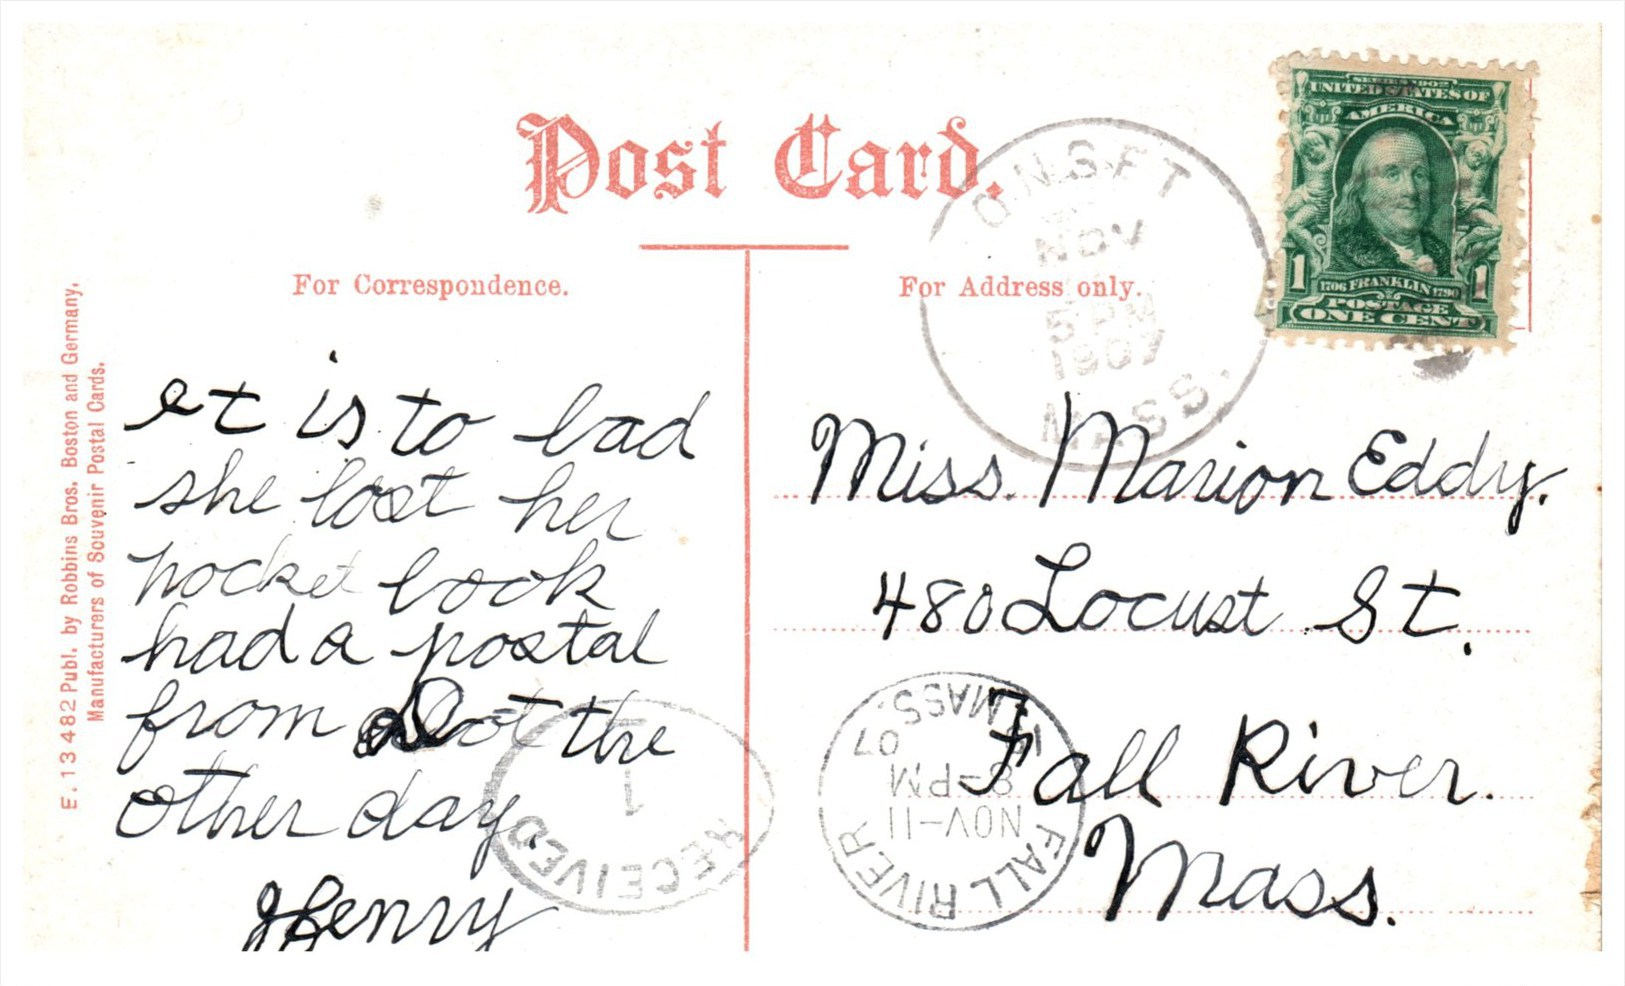 Post Card.
For Correspondence.
For Address only.
E. 13482 Publ. by Robbins Bros. Boston and Germany,
Manufacturers of Souvenir Postal Cards.
SERIES 1902
UNITED STATES OF
AMERICA
1706 FRANKLIN 1790
1 1
POSTAGE
ONE CENT
ONSET
NOV
5 PM
1907
MASS.
et is to bad
she lost her
pocket book
had a postal
from Dot the
other day.
Henry
Miss. Marion Eddy.
480 Locust St.
Fall River.
Mass.
RECEIVED
1
FALL RIVER
NOV-11
8-PM
07
MASS.